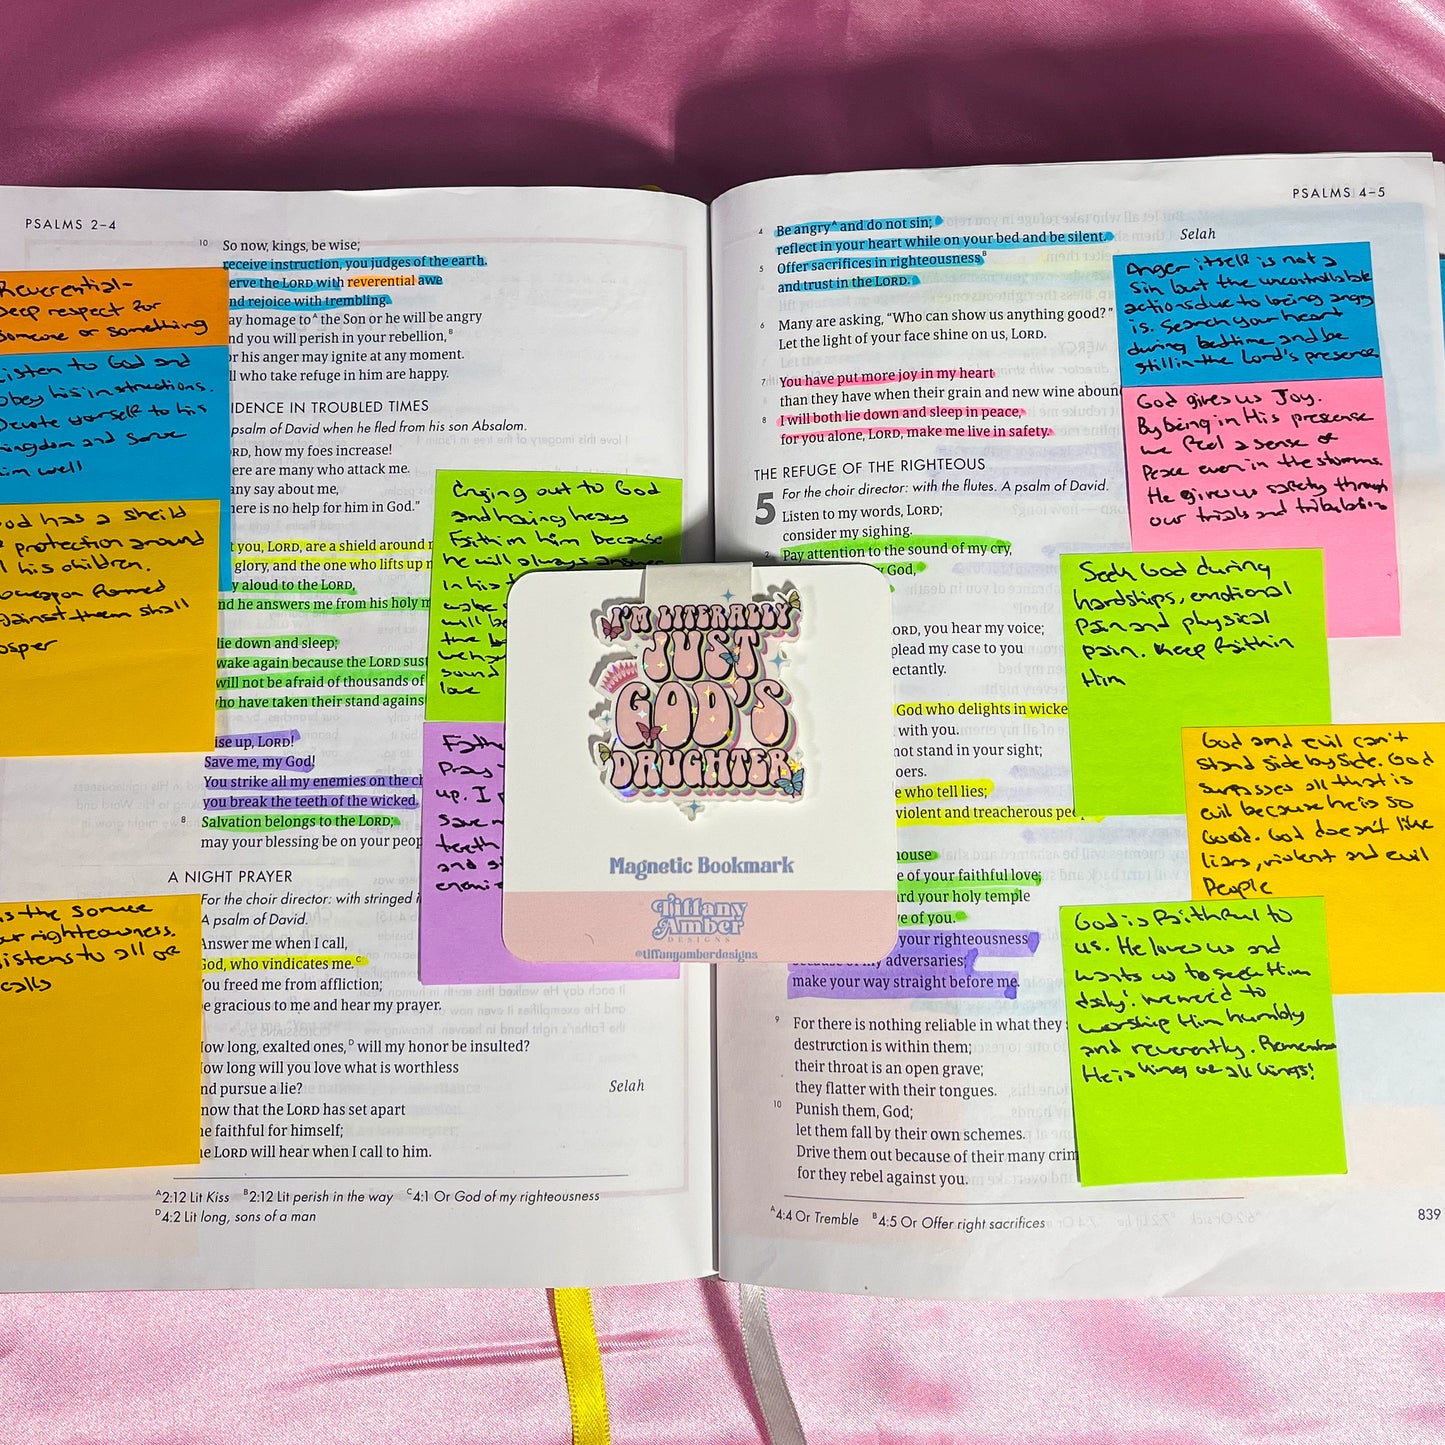 PSALMS 2–4
10 So now, kings, be wise;
receive instruction, you judges of the earth.
erve the LORD with reverential awe
nd rejoice with trembling.
ay homage toᴬ the Son or he will be angry
nd you will perish in your rebellion,ᴮ
or his anger may ignite at any moment.
ll who take refuge in him are happy.
IDENCE IN TROUBLED TIMES
psalm of David when he fled from his son Absalom.
ORD, how my foes increase!
ere are many who attack me.
any say about me,
here is no help for him in God."
t you, LORD, are a shield around
glory, and the one who lifts up
y aloud to the LORD,
nd he answers me from his holy
lie down and sleep;
wake again because the LORD sust
will not be afraid of thousands of
ho have taken their stand agains
ise up, LORD!
Save me, my God!
You strike all my enemies on the ch
you break the teeth of the wicked.
8 Salvation belongs to the LORD;
may your blessing be on your peop
A NIGHT PRAYER
For the choir director: with stringed i
A psalm of David.
Answer me when I call,
God, who vindicates me.ᶜ
You freed me from affliction;
be gracious to me and hear my prayer.
How long, exalted ones,ᴰ will my honor be insulted?
How long will you love what is worthless
nd pursue a lie? Selah
now that the LORD has set apart
he faithful for himself;
he LORD will hear when I call to him.
ᴬ2:12 Lit Kiss ᴮ2:12 Lit perish in the way ᶜ4:1 Or God of my righteousness
ᴰ4:2 Lit long, sons of a man
Reverential-
Deep respect for
someone or something
Listen to God and
obey his instructions.
Devote yourself to his
kingdom and serve
him well
God has a sheild
protection around
his children.
weapon formed
against them shall
osper
is the source
our righteousness.
listens to all of
calls
Crying out to God
and having heavy
Faith in him because
he will always answer
in his
wake
will be
the
we
sound
love
Fathe
Pray
up. I
save
teeth
and
enemi
I'M LITERALLY
JUST
GOD'S
DAUGHTER
Magnetic Bookmark
Tiffany
Amber
DESIGNS
@tiffanyamberdesigns
PSALMS 4–5
4 Be angryᴬ and do not sin;
reflect in your heart while on your bed and be silent. Selah
5 Offer sacrifices in righteousnessᴮ
and trust in the LORD.
6 Many are asking, "Who can show us anything good?"
Let the light of your face shine on us, LORD.
7 You have put more joy in my heart
than they have when their grain and new wine aboun
8 I will both lie down and sleep in peace,
for you alone, LORD, make me live in safety.
THE REFUGE OF THE RIGHTEOUS
5 For the choir director: with the flutes. A psalm of David.
Listen to my words, LORD;
consider my sighing.
2 Pay attention to the sound of my cry,
God,
ORD, you hear my voice;
plead my case to you
ectantly.
God who delights in wicke
with you.
not stand in your sight;
oers.
e who tell lies;
violent and treacherous peo
house
e of your faithful love;
ard your holy temple
ve of you.
your righteousness
because of my adversaries;
make your way straight before me.
9 For there is nothing reliable in what they
destruction is within them;
their throat is an open grave;
they flatter with their tongues.
10 Punish them, God;
let them fall by their own schemes.
Drive them out because of their many crim
for they rebel against you.
ᴬ4:4 Or Tremble ᴮ4:5 Or Offer right sacrifices
839
Anger itself is not a
Sin but the uncontrollable
actions due to being angry
is. Search your heart
during bedtime and be
still in the Lord's presence
God gives us Joy.
By being in His presence
we feel a sense of
Peace even in the storms.
He gives us safety through
our trials and tribulation
Seek God during
hardships, emotional
Pain and physical
pain. Keep faith in
Him
God and evil can't
stand side by side. God
surpasses all that is
evil because he is so
Good. God doesn't like
liars, violent and evil
People
God is faithful to
us. He loves us and
wants us to seek Him
daily! we need to
worship Him humbly
and reverently. Remember
He is king of all kings!